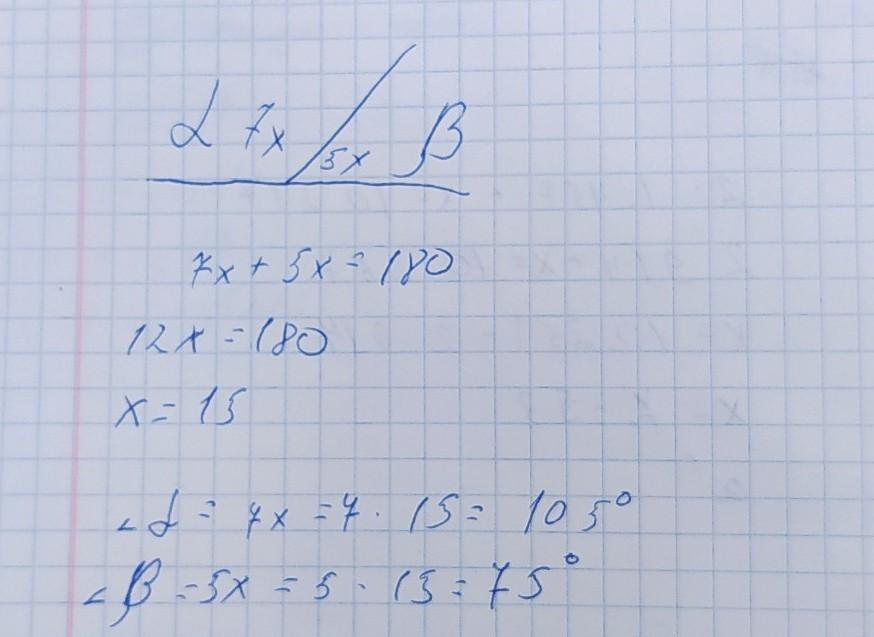 α 7x 5x β
7x + 5x = 180
12x = 180
x = 15
∠α = 7x = 7 · 15 = 105°
∠β = 5x = 5 · 15 = 75°